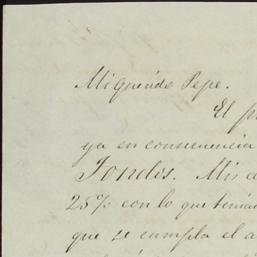 Mi querido Pepe.
El p
ya en consecuencia
Fondos. Mis a
25% con lo que tenia
que se cumpla el a